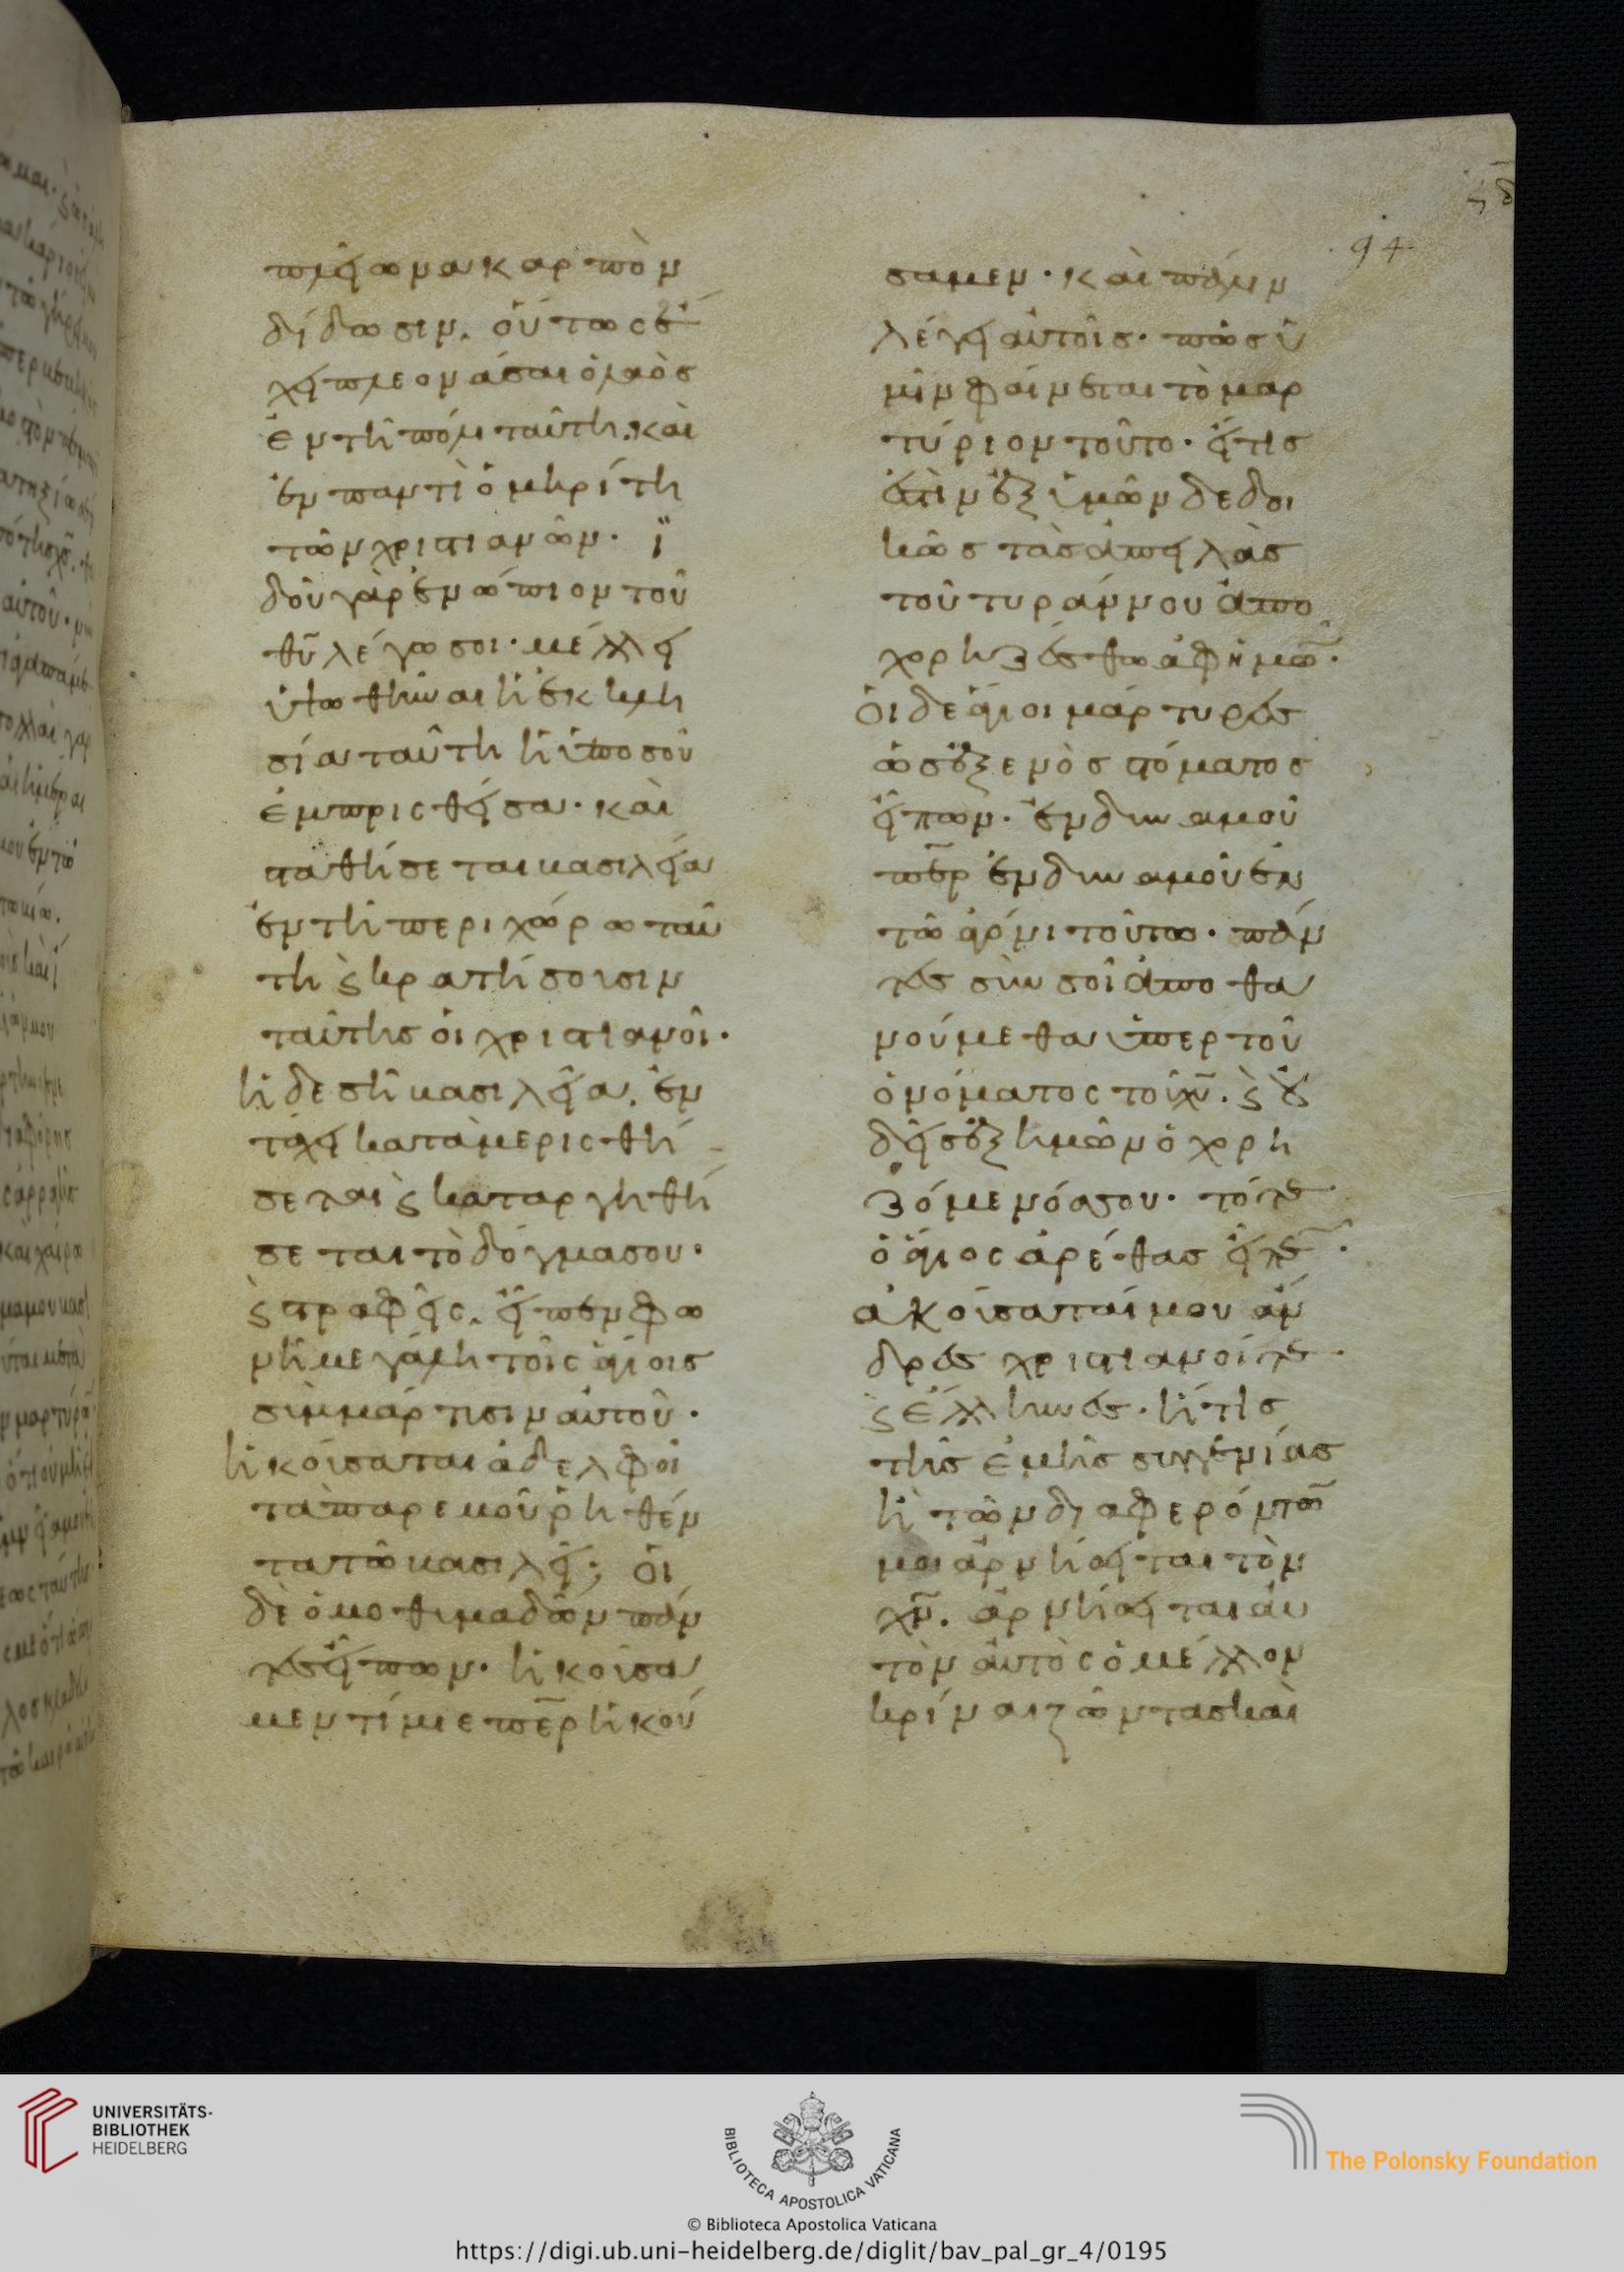 πλείωνα καρπὸν
δίδωσιν. οὕτως ἔ
χει πλεονάσαι ὁ λαὸς
ἐν τῆ πόλι ταύτη. καὶ
ἐν παντὶ ὁμηρίτη
τῶν χριστιανῶν. ϊ
δοῦ γὰρ ἐνώπιον τοῦ
θῦ λέγω σοι. μέλλει
ὑψωθῆναι ἡ ἐκκλη
σία ταύτη ἡ ὑπο σοῦ
ἐμπρισθείσα. καὶ
σταθήσεται βασιλεία
ἐν τῆ περιχώρω ταύ
τη ϛ κρατήσουσιν
ταύτης οἱ χριστιανοῖ.
ἡ δε σὴ βασιλεία. ἐν
τάχει καταμερισθή
σεται ϛ καταργηθή
σεται τὸ δόγμα σου.
ϛ στραφεὶς. εἶπεν φω
νῆ μεγάλη τοῖς ἁγίοις
σὺμμάρτυσιν αὐτοῦ.
ἠκούσαται ἀδελφοὶ
τὰ παρεμοῦ ῥηθέν
τα τῶ βασιλεῖ; οἱ
δὲ ὁμοθυμαδῶν πάν
τες εἶπων. ἠκούσα
μεν τίμιε π̅ε̅ρ ἠκού
σαμεν. καὶ πάλιν
λέγει αὐτοῖς. πῶς ὑ
μῖν φαίνεται τὸ μαρ
τύριον τοῦτο. εἴ τις
ἐστὶν ἐξ ὑμῶν δεδοι
κῶς τὰς ἀπειλὰς
τοῦ τυράννου ἀπο
χορηζέσθω ἀφ ἡμῶ̅.
Οἱ δὲ ἅγιοι μάρτυρες
ὡς ἐξ ενὸς στόματος
εἶπων. ἐνδυναμοῦ
π̅ε̅ρ ἐνδυναμοῦ ἐν
τῶ ἀγόνι τούτω. πάν
τες σὺν σοὶ ἀποθα
νούμεθα ὑπερ τοῦ
ὀνόματος τοῦ χῦ. ϛ οὐ
δεὶς ἐξ ἡμῶν ὁ χορη
ζόμενός σου. τότε
ὁ ἅγιος ἀρέθας εἶπε.
ἀκούσαταί μου ἄν
δρες χριστιανοί τε
ϛ έλληνες. ἤ τις
τῆς ἐμῆς συγγενίας
ἢ τῶν διαφερόντω̅
μοι ἀρνήσηται τὸν
χν̅. ἀρνήσηται αὐ
τὸν αὐτὸς ὁ μέλλον
κρίναι ζῶντας καὶ
94
UNIVERSITÄTS-
BIBLIOTHEK
HEIDELBERG
BIBLIOTECA APOSTOLICA VATICANA
The Polonsky Foundation
© Biblioteca Apostolica Vaticana
https://digi.ub.uni-heidelberg.de/diglit/bav_pal_gr_4/0195